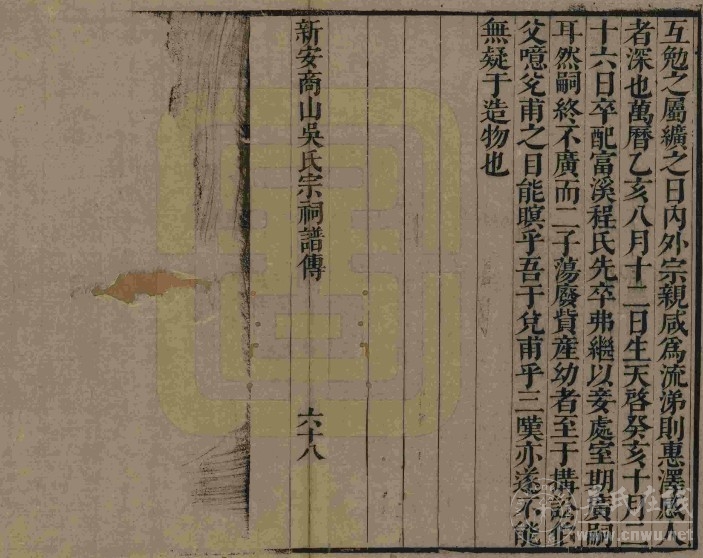 互勉之屬纊之日內外宗親咸為流涕則惠澤感人
者深也萬曆乙亥八月十二日生天啓癸亥十月二
十六日卒配富溪程氏先卒弗繼以妾處至期廣嗣
耳然嗣終不廣而二子蕩廢貲產幼者至于搆訟
父噫兌甫之目能瞑乎吾于兌甫乎三嘆亦遂不能
無疑于造物也
新安商山吳氏宗祠譜傳
六十八
吳氏在线
www.cnwu.net